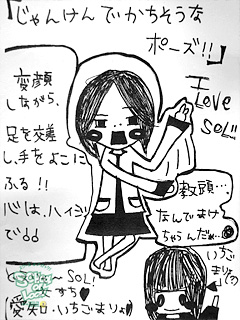 「じゃんけんでかちそうな
ポーズ!!」
変顔
しながら、
足を交差
し、手をよこに
ふる!!
バは、ハイジ
で♪♪
I
Love
SOL!!
教頭…
なんでまけ
ちゃうんだぁ…
いちご
まりょ
SOL!
すち♥
(愛知・いちごまりょ)